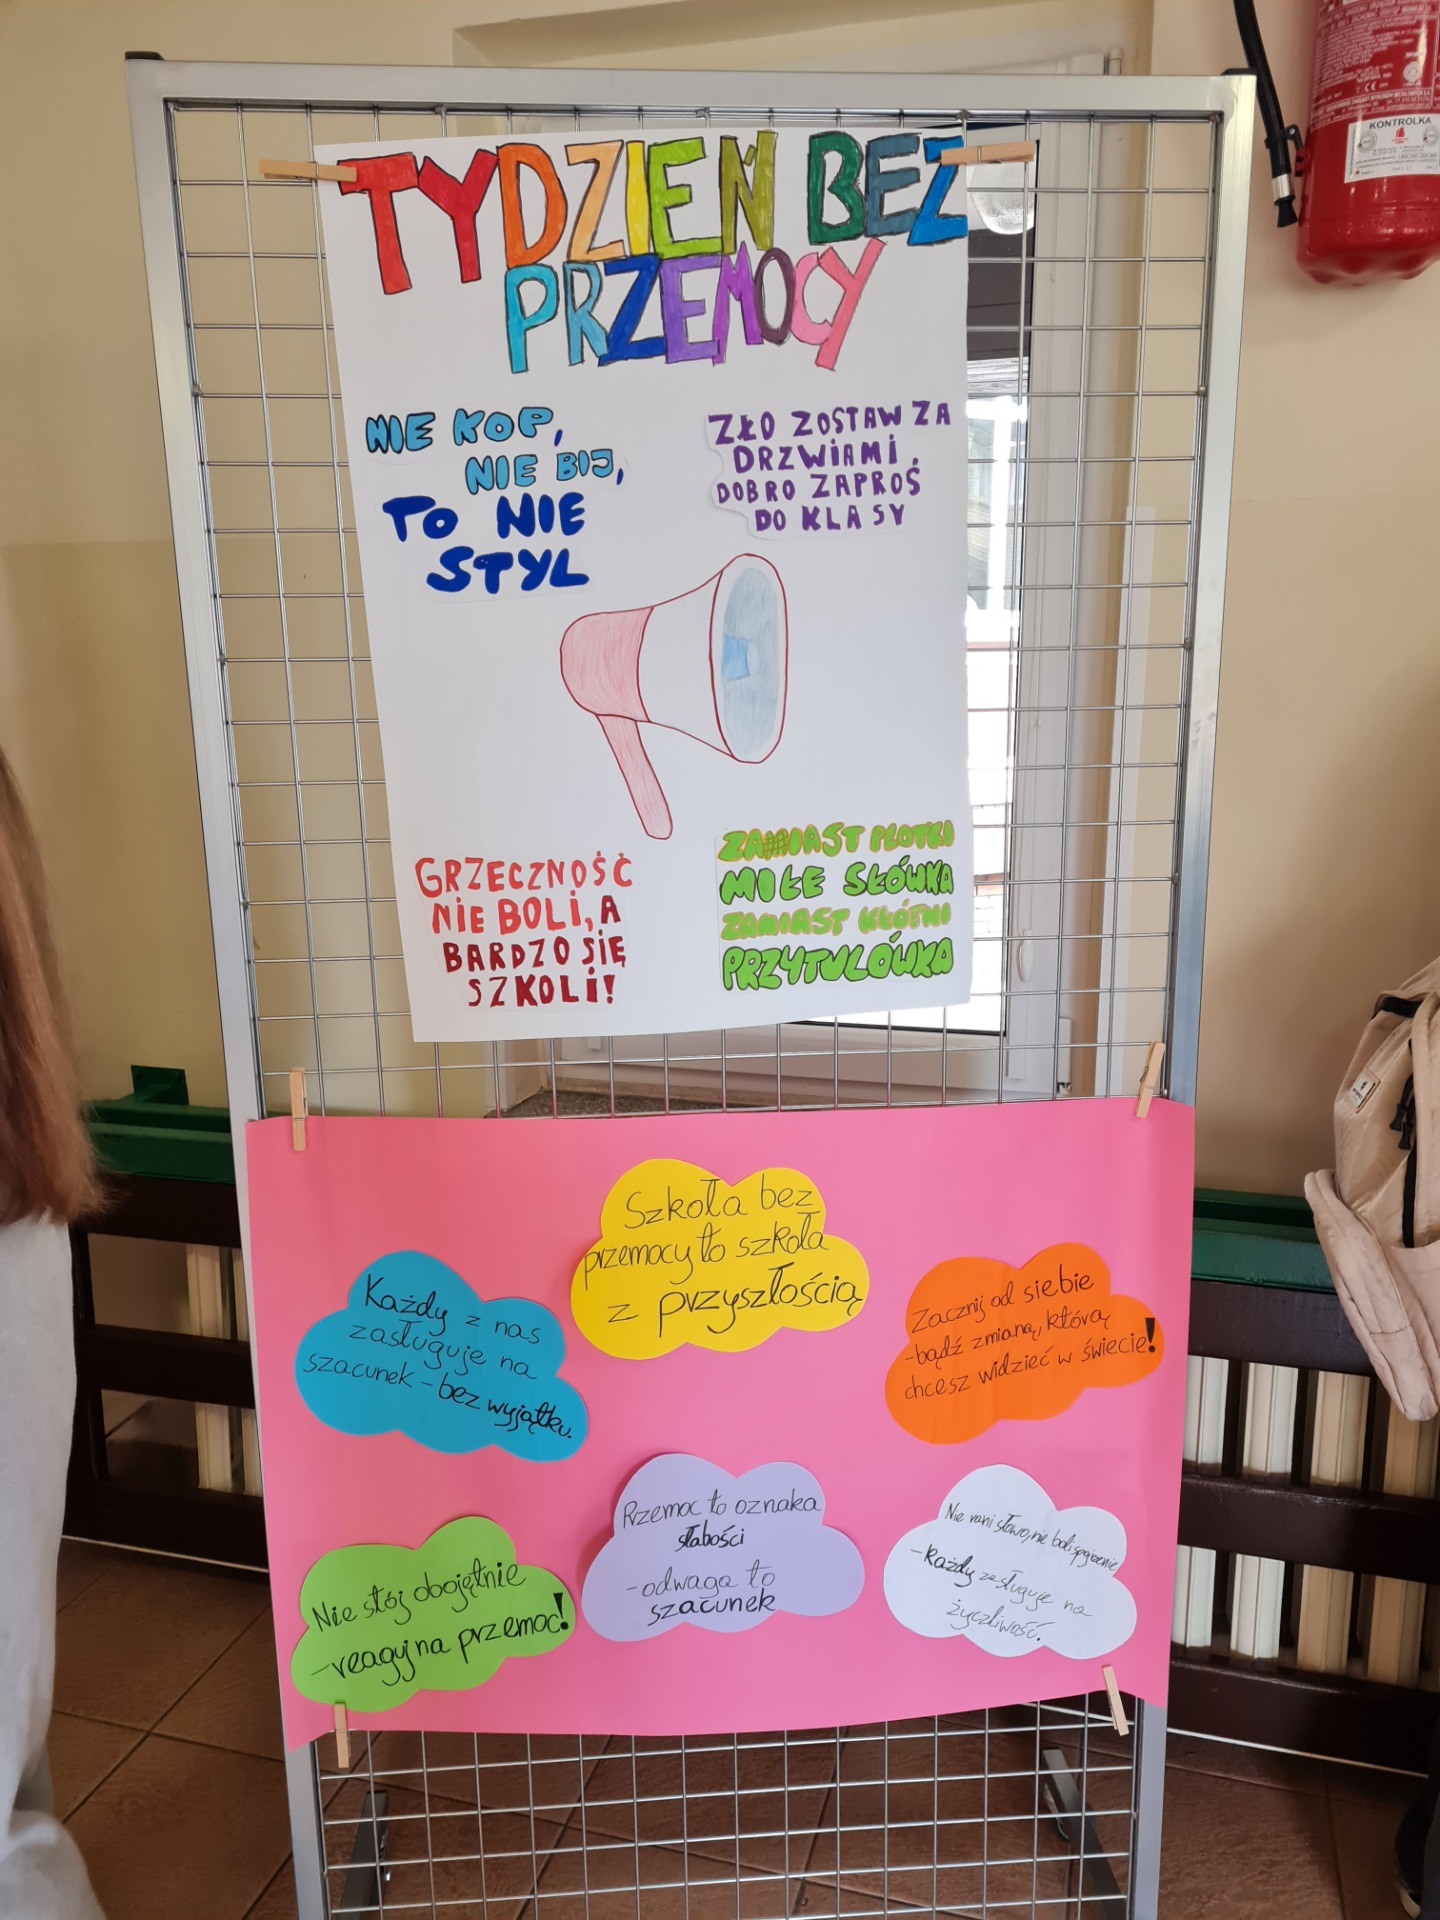 TYDZIEŃ BEZ
PRZEMOCY
NIE KOP,
NIE BIJ,
TO NIE
STYL
ZŁO ZOSTAW ZA
DRZWIAMI,
DOBRO ZAPROŚ
DO KLASY
GRZECZNOŚĆ
NIE BOLI, A
BARDZO SIĘ
SZKOLI!
ZAMIAST PLOTKI
MIŁE SŁÓWKA
ZAMIAST KŁÓTNI
PRZYTULÓWKA
Szkoła bez
przemocy to szkoła
z przyszłością
Każdy z nas
zasługuje na
szacunek - bez wyjątku.
Zacznij od siebie
-bądź zmianą, którą
chcesz widzieć w świecie!
Nie stój obojętnie
-reaguj na przemoc!
Przemoc to oznaka
słabości
-odwaga to
szacunek
Nie rani słowo, nie boli spojrzenie
-Każdy zasługuje na
życzliwość.
KONTROLKA